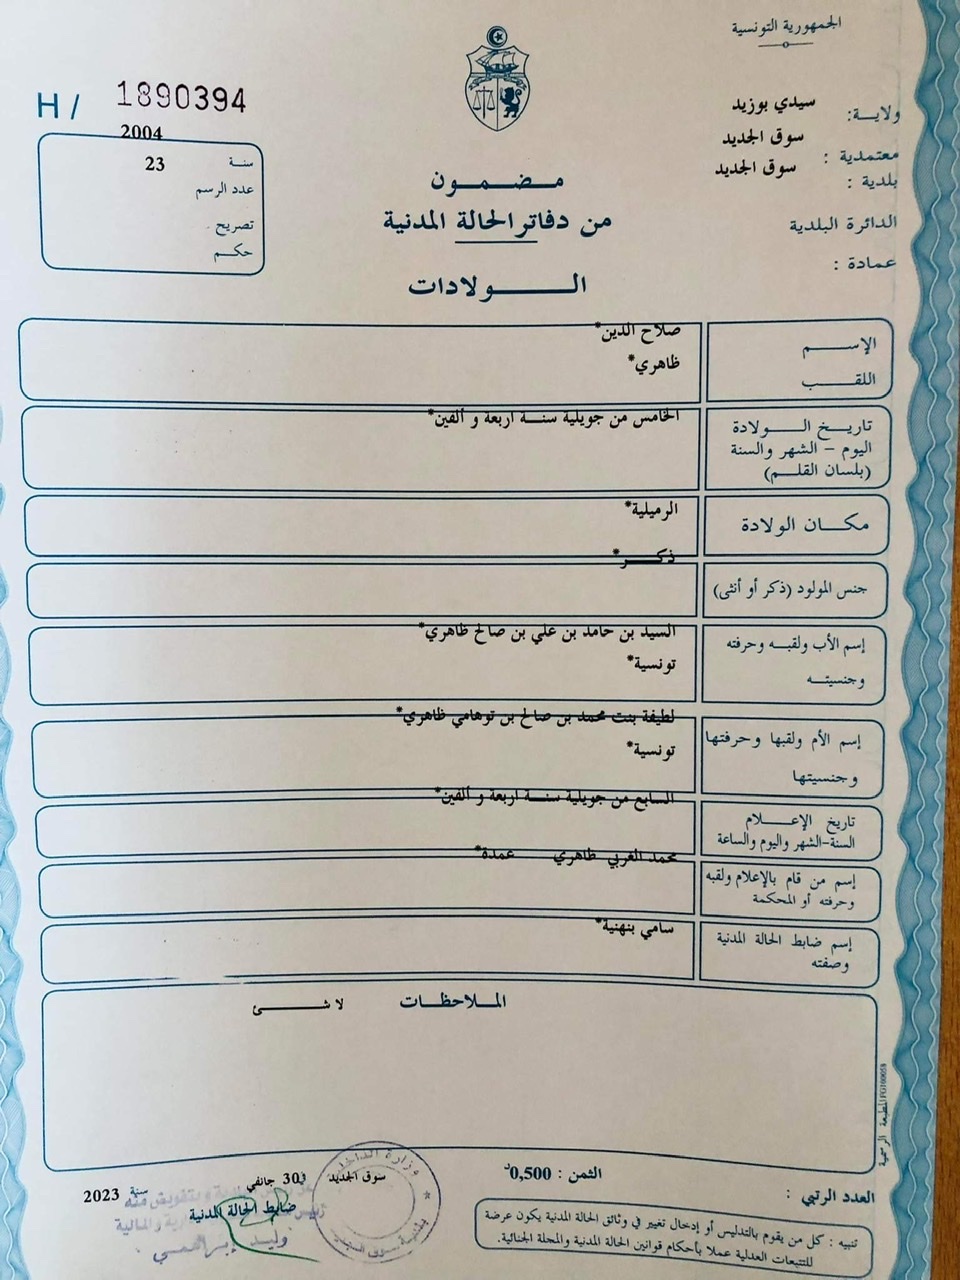 الجمهورية التونسية
H / 1890394
ولايـة: سيدي بوزيد
معتمدية : سوق الجديد
بلدية : سوق الجديد
الدائرة البلدية
عمادة :
2004
سنـة 23
عدد الرسم
تصريح
حكـم
مـضـمـون
من دفاتر الحالة المدنية
الـــولادات
الإســـم صلاح الدين*
اللقـــب ظاهري*
تاريـخ الـــولادة الخامس من جويلية سنـة اربعة و ألفين*
اليوم – الشهر والسنة
(بلسان القلـم)
مكـان الولادة الرميلية*
ذكـر*
جنس المولود (ذكر أو أنثى)
إسم الأب ولقبـه وحرفته السيد بن حامد بن علي بن صالح ظاهري*
وجنسيتـه تونسية*
لطيفة بنت محمد بن صالح بن توهامي ظاهري*
إسم الأم ولقبها وحرفتها تونسية*
وجنسيتها
السابع من جويلية سنـة اربعة و ألفين*
تاريخ الإعـــلام
السنة-الشهر واليوم والساعة
محمد العربي ظاهري عمدة*
إسم من قام بالإعلام ولقبه
وحرفته أو المحكمة
إسم ضابط الحالة المدنية سامي بنهنية*
وصفته
الملاحظـات لا شـــئ
المطبعة الرسمية
الثمن : 0,500د
العدد الرتبي :
سوق الجديد في 30 جانفي سنة 2023
ضابط الحالة المدنية
وزارة الداخلية
بلدية سوق الجديد
وليد إبراهمي
تنبيه : كل من يقوم بالتدليس أو إدخال تغيير في وثائق الحالة المدنية يكون عرضة
للتتبعات العدلية عملا بأحكام قوانين الحالة المدنية والمجلة الجنائية.